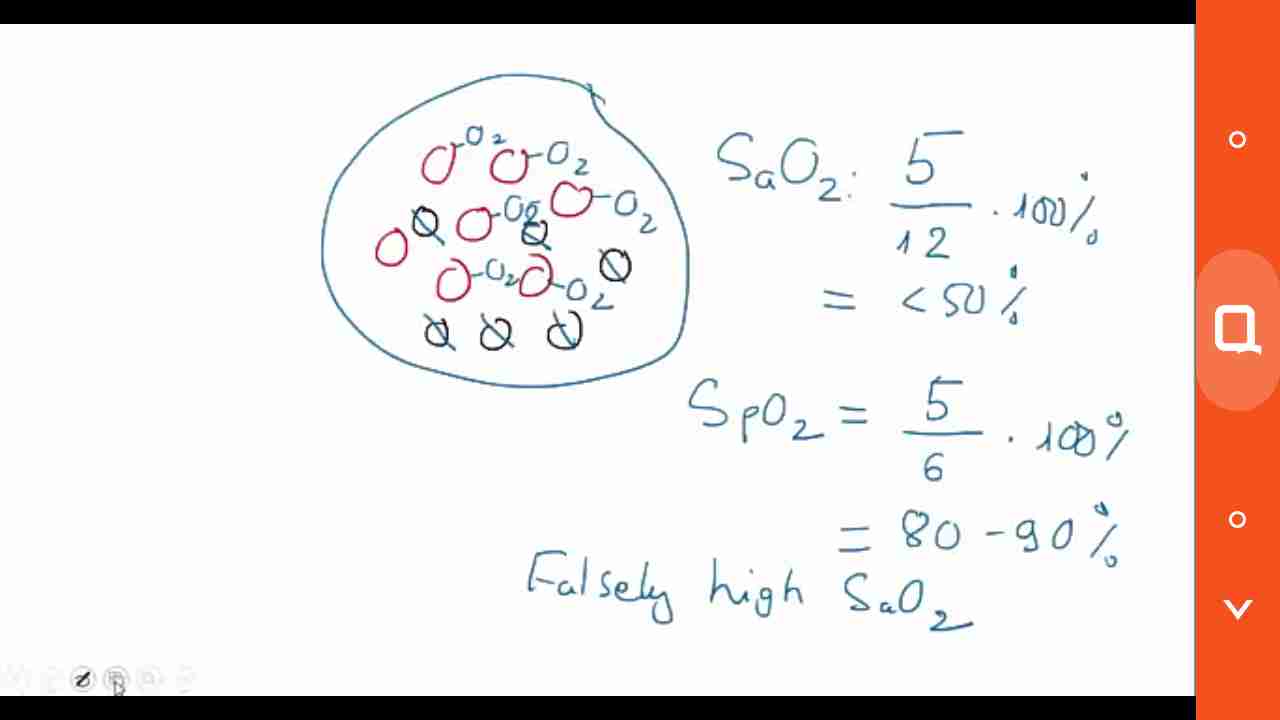 O2
O2
O2
O2
O2
O2
SaO2: 5/12 . 100%
= < 50%
SpO2 = 5/6 . 100%
= 80 - 90%
Falsely high SaO2